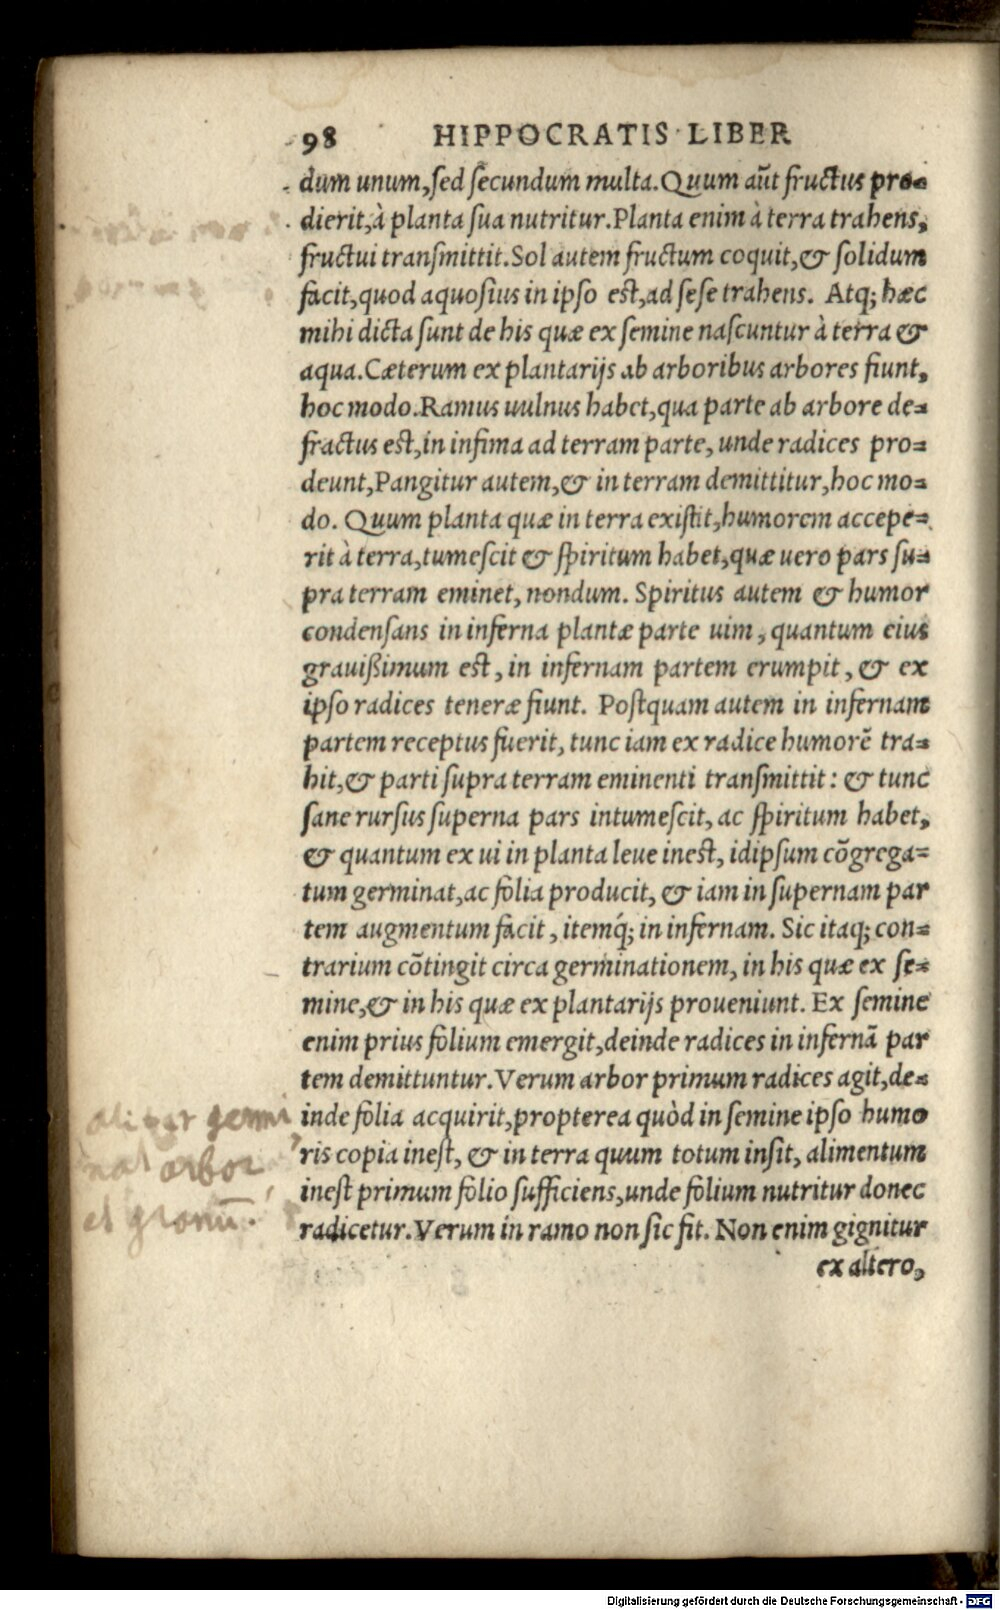 98 HIPPOCRATIS LIBER
dum unum, sed secundum multa. Quum aũt fructus pro=
dierit, à planta sua nutritur. Planta enim à terra trahens,
fructui transmittit. Sol autem fructum coquit, & solidum
facit, quod aquosius in ipso est, ad sese trahens. Atq; hæc
mihi dicta sunt de his quæ ex semine nascuntur à terra &
aqua. Cæterum ex plantarijs ab arboribus arbores fiunt,
hoc modo. Ramus uulnus habet, qua parte ab arbore de=
fractus est, in infima ad terram parte, unde radices pro=
deunt, Pangitur autem, & in terram demittitur, hoc mo=
do. Quum planta quæ in terra existit, humorem accepe=
rit à terra, tumescit & spiritum habet, quæ uero pars su=
pra terram eminet, nondum. Spiritus autem & humor
condensans in inferna plantæ parte uim, quantum eius
grauißimum est, in infernam partem erumpit, & ex
ipso radices teneræ fiunt. Postquam autem in infernam
partem receptus fuerit, tunc iam ex radice humorẽ tra=
hit, & parti supra terram eminenti transmittit: & tunc
sane rursus superna pars intumescit, ac spiritum habet,
& quantum ex ui in planta leue inest, idipsum cõgrega=
tum germinat, ac folia producit, & iam in supernam par
tem augmentum facit, itemq́; in infernam. Sic itaq; con=
trarium cõtingit circa germinationem, in his quæ ex se=
mine, & in his quæ ex plantarijs proueniunt. Ex semine
enim prius folium emergit, deinde radices in infernã par
tem demittuntur. Verum arbor primum radices agit, de=
inde folia acquirit, propterea quòd in semine ipso humo
ris copia inest, & in terra quum totum insit, alimentum
inest primum folio sufficiens, unde folium nutritur donec
radicetur. Verum in ramo non sic fit. Non enim gignitur
ex altero,
aliter germi
nat arbor
et granũ.
Digitalisierung gefördert durch die Deutsche Forschungsgemeinschaft - DFG